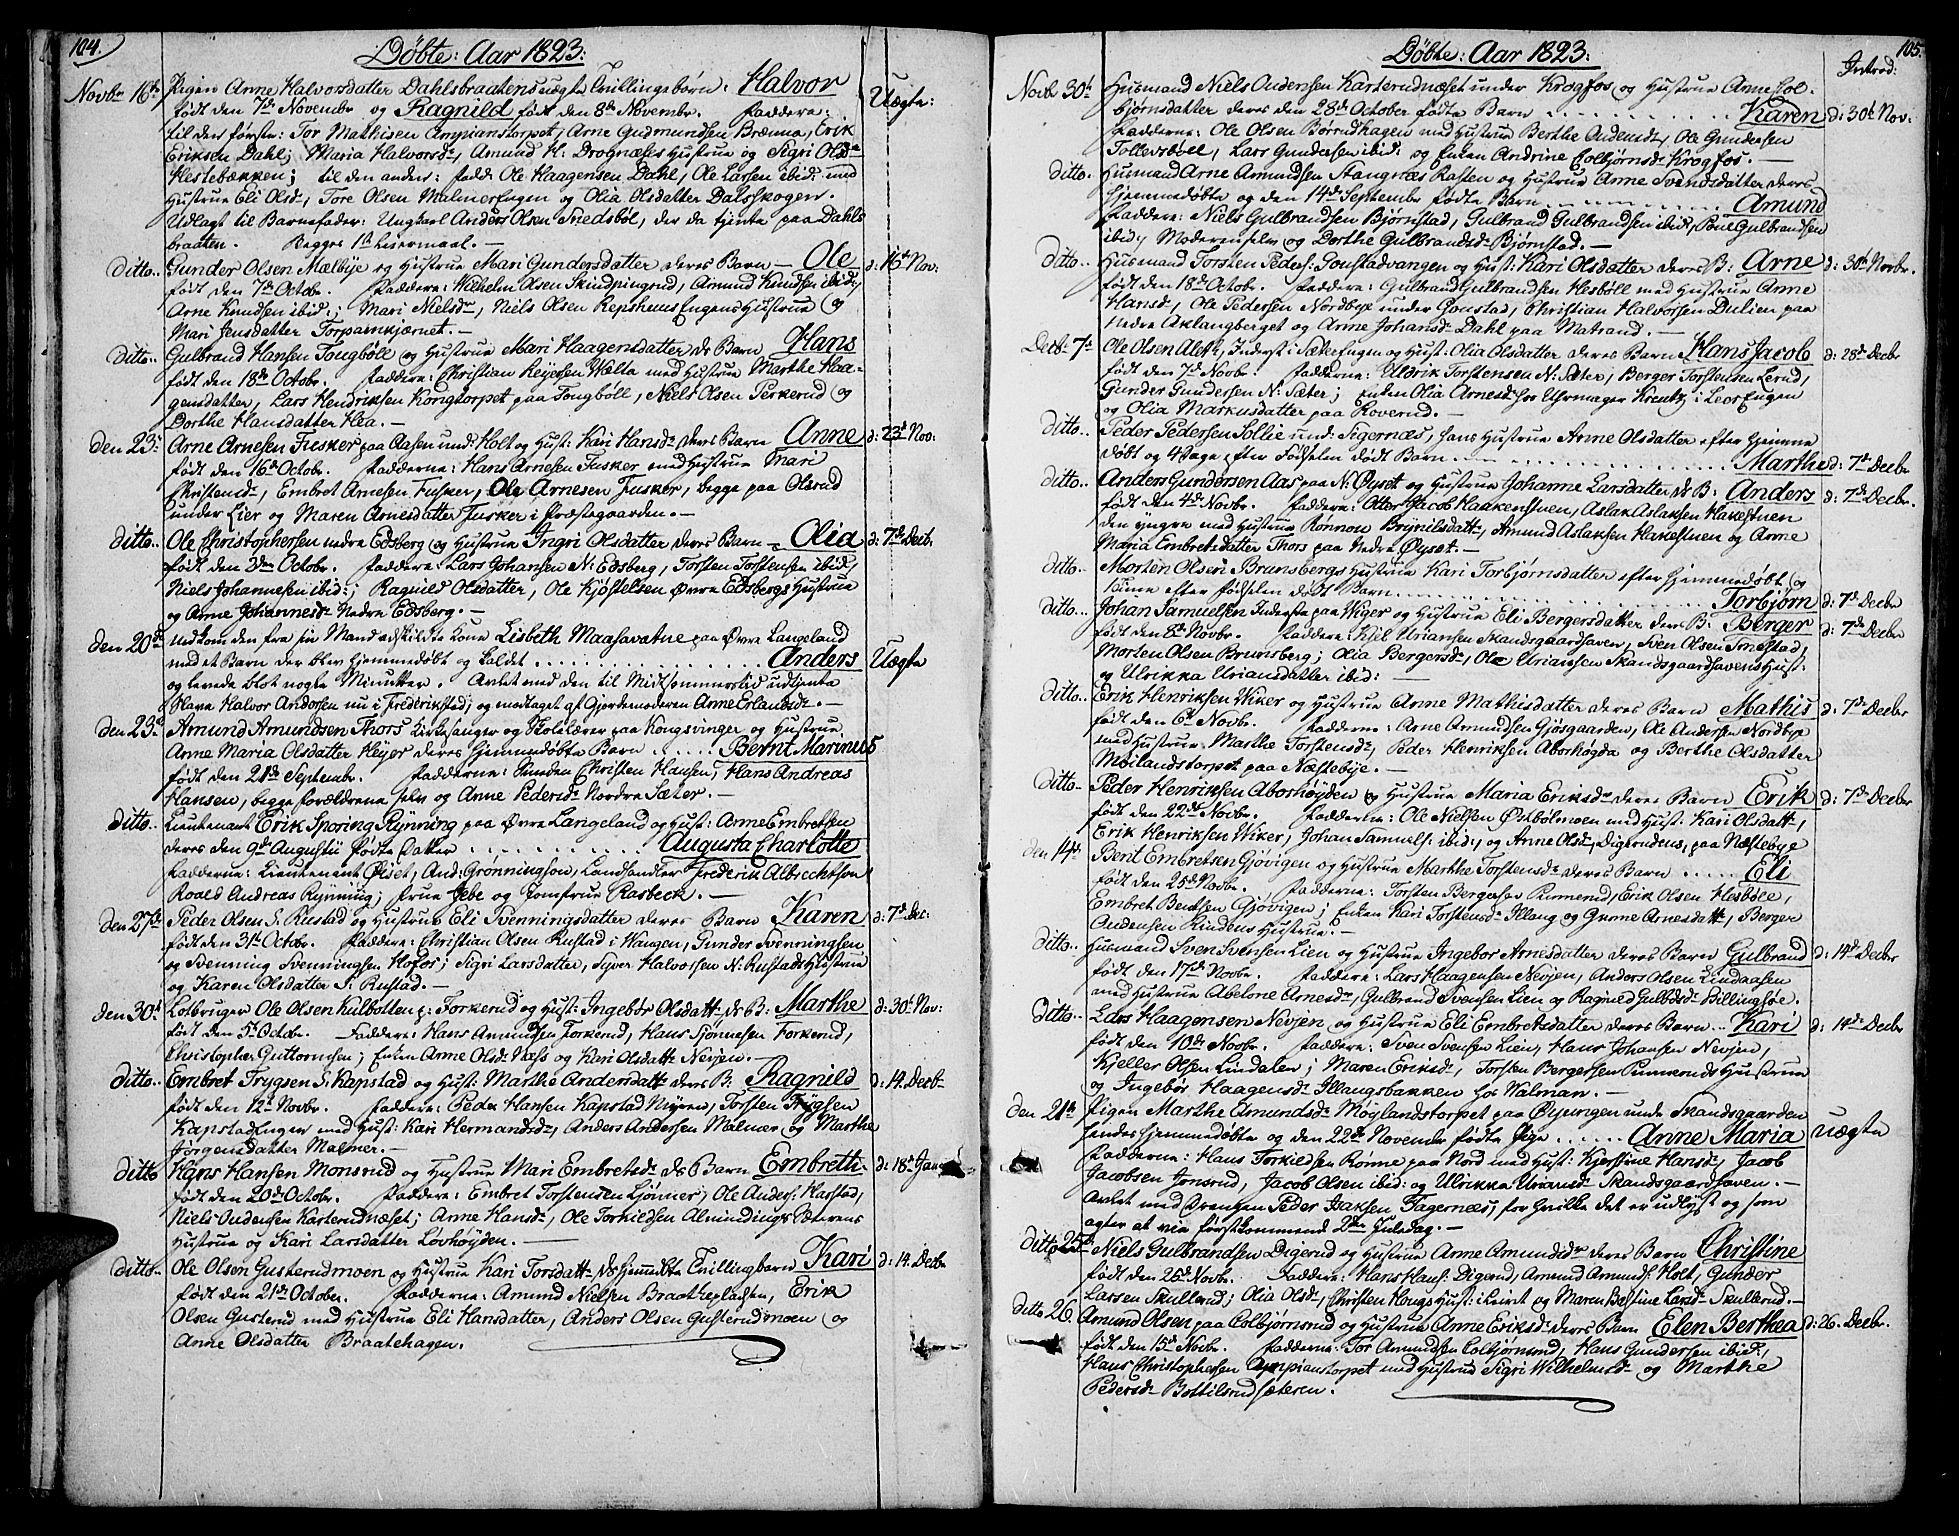 104.
Døbte: Aar 1823:
Novbr 16de Pigen Anne Halvorsdatter Dahlsbraatens uægte Tvillingebørn: Halvor Uægte:
født den 7de Novembr og Ragnild født den 8de Novembr. Faddere:
til den første: Tor Mathisen Ampianstorpet, Arne Gudmundsen Brænna, Erik
Eriksen Dahl; Maria Halvorsdr, Amund H: Drognæses Hustrue og Sigri Olsdr
Hestebækken; til den anden: Fadd: Ole Haagensen Dahl, Ole Larsen ibid: med
Hustrue Eli Olsdr, Tore Olsen MalmerEngen og Olia Olsdatter Dalsskogen.
Udlagt til Barnefader: Ungkarl Anders Olsen Snedsböl, der da tjente paa Dahls
braaten. Begges 1ste Leiermaal. —
Ditto.. Gunder Olsen Mælbye og Hustrue Mari Gundersdatter deres Barn — Ole d: 16de Nov:
født den 7de Octobr. Faddere: Wilhelm Olsen Skindpungrud, Amund Knudsen ibid:,
Arne Knudsen ibid:; Mari Nielsdr, Niels Olsen Repshuus Engens Hustrue og
Mari Jensdatter Torpamkjernet. —
Ditto.. Gulbrand Hansen Tougböll og Hustrue Mari Haagensdatter Ds Barn Hans
født den 18de Octobr. Faddere: Christian Reiersen Wella med Hustrue Marthe Haa-
gensdatter, Lars Hendriksen Kongtorpet paa Tougböll, Niels Olsen Perkerud og
Dorthe Hansdatter Hea. —
Den 23: Arne Arnesen Fusker paa Aasen und: Holt og Hust: Kari Hansdr deres Barn Anne d: 23d Nov:
født den 16de Octobr. Fadderne: Hans Arnesen Fusker med Hustrue Mari
Christensdr, Embret Arnesen Fusker, Ole Arnesen Fusker, begge paa Olsrud
under Lier og Maren Arnesdatter Fusker i Præstegaarden. —
Ditto.. Ole Christophersen nedre Edsberg og Hustrue Ingri Olsdatter deres Barn — Olia d: 7de Decb:
født den 3die Octobr. Faddere: Lars Johansen N: Edsberg, Torsten Torstensen ibid:,
Niels Johannesen ibid:; Ragnild Olsdatter, Ole Kjøstelsen Øvre Edsbergs Hustrue
og Anne Johannesdr Nedre Edsberg. —
Den 20de nedkom den fra sin Mand adskildte Kone Lisbeth Maasavatne paa Øvre Langeland
med et Barn der blev hjemmedøbt og kaldet . . . . . Anders Uægte
og levede blot nogle Minutter. Avlet med den til Midtsommerstid udtjente
Slave Halvor Andersen nu i Frederikstad; og modtaget af Gjordemoderen Anne Erlandsdr. —
den 23de Amund Amundsen Thors Kirkesanger og Skolelærer paa Kongsvinger og Hustrue
Anne Maria Olsdatter Heyer deres hjemmedøbte Barn . . . . . Bernt Marinus
født den 21de Septembr. Fadderne: Christen Hansen, Hans Andreas
Hansen, begge Forældrene selv og Anne Pedersdr Nordre Sæter. —
Ditto.. Lieutenant Erik Sporing Rynning paa Øvre Langeland og Hust: Anne Embretsen
deres den 9de Augustii fødte Datter . . . . . Augusta Charlotte
Fadderne: Lieutenent Øiset, And: Grønningsen, Landhandler Frederik Albrechtson
Roald Andreas Rynning; Frue Jebe og Jomfrue Rasbeck. —
den 27de Peder Olsen S. Rustad og Hustrue Eli Svenningsdatter deres Barn Karen d: 7de Dec:
født den 31te Octobr. Faddere: Christian Olsen Rustad i Wangen, Gunder Svenningsen
og Svenning Svenningsen Hofos; Sigri Larsdatter, Siver Halvorsen N: Rustads Hustrue
og Karen Olsdatter S: Rustad. —
den 30te Lotbruger Ole Olsen Kulbotten p: Torkerud og Hust: Ingebor Olsdatt: Ds B: Marthe d: 30te Nov:
født den 5te Octobr. Faddere: Hans Amundsen Torkerud, Hans Sjønnesen Forkerud,
Christopher Guttormsen; Enken Anne Olsdr Næss og Kari Olsdatter Nevjen. —
Ditto.. Embret Trygsen S: Kapstad og Hust: Marthe Andersdatt: deres B: Ragnild d: 14. Decbr
født den 12te Novbr. Faddere: Peder Hansen Kapstad Nyeren, Torsten Trygsen
KapstadEngen med Hust: Kari Hermandsdr, Anders Andersen Malmer og Marthe
Jørgensdatter Malmer. —
Ditto Hans Hansen Monsrud og Hustrue Mari Embretsdr Ds Barn Embreth d: 18de Jan
født den 20de Octobr. Faddere: Embret Torstensen Ljønner, Ole Anders: Harstad,
Niels Andersen Karterudnæset; Anne Hansdr, Ole Torkildsen Almindings Sæterens
Hustrue og Kari Larsdatter Lövhöyden. —
Ditto.. Ole Olsen Gusterudmoen og Hustrue Kari Torsdatt: Ds hjemmedøbte Tvillingbarn Kari d: 14. Decbr
født den 21de October. Faddere: Amund Nielsen Braathepladsen, Erik
Olsen Gusterud med Hustrue Eli Hansdatter, Anders Olsen Gusterudmoen og
Anne Olsdatter Braatehagen.
105.
Døbte: Aar 1823: Introd:
Novbr 30te Husmand Niels Andersen Karterudnæset under Krogfos og Hustrue Anne Col-
bjørnsdatter deres den 28de October fødte Barn . . . . . Karen d: 30te Nov:
Fadderne: Ole Olsen Børrudhagen med Hustrue Berthe Andersdr, Ole Gundersen
Tollersböll, Lars Gundersen ibid: og Enken Andrine Colbjørnsdr Krogfos. —
Ditto.. Husmand Arne Amundsen Stangnæs Kasten og Hustrue Anne Svendsdatter deres
hjemmedøbte og den 14de Septembr fødte Barn . . . . . Amund
Faddere: Niels Gulbrandsen Bjørnstad, Gulbrand Gulbrandsen ibid:, Poul Gulbrandsen
ibid:, Moderen selv og Dorthe Gulbrandsdr Bjørnstad. —
Ditto.. Husmand Torsten Peders: Gonstadvangen og Hust: Kari Olsdatter deres B: Arne d: 30te Novbr.
født den 18de Octobr. Faddere: Gulbrand Gulbrandsen Hesböll med Hustrue Anne
Hansdr, Ole Pedersen Nordbye under Gonstad, Christian Halvorsen Dulien paa
Nedre Asklangberget og Anne Johansdr Dahl paa Matrand. —
Decbr 7de Ole Olsen Aleth: Inderst i SæterEngen og Hust: Olia Olsdatter deres Barn Hans Jacob d: 28de Decbr
født den 7de Novbr. Fadderne: Uldrik Torstensen N: Sæter, Berger Torstensen Lerud,
Gunder Gundersen N: Sæter; Enken Olia Arnesdr hos Uhrmager Kreutz i LeirEngen
og Olia Markusdatter paa Roverud. —
Ditto.. Peder Pedersen Sollie und: Sigernæs, hans Hustrue Anne Olsdatter efter hjemme
døbt og 4 Dage efter Fødselen dødt Barn . . . . . Marthe d: 7de Decbr
Ditto.. Anders Gundersen Aas paa N: Øyset og Hustrue Johanne Larsdatter Ds B: Anders d: 7de Decbr.
født den 4de Novbr. Faddere: Otter Jacob Haakenstuen, Aslak Aslaksen Hakestuen
den yngre med Hustrue Rønnow Brynilsdatt:, Amund Aslaksen Hakestuen og Anne
Maria Embretsdatter Thors paa Nedre Øyset. —
Ditto.. Morten Olsen Brunsbergs Hustrue Kari Torbjørnsdatter efter hjemmedøbt og
kune efter fødselen dødt Barn . . . . . Torbjørn d: 7de Decbr
Ditto... Johan Samuelsen Inderste paa Wiger og Hustrue Eli Bergersdatter deres B: Berger d: 7de Decbr
født den 8de Novbr. Faddere: Kiel Uriansen Skandsgaardhaven, Sven Olsen Tmestad,
Morten Olsen Brunsberg; Olia Bergersdr, Ole Uriansen Skandsgaardhavens Hust:
og Ulrikka Uriansdatter ibid: —
Ditto.. Erik Henriksen Wiker og Hustrue Anne Mathisdatter deres Barn Mathis d: 7de Decbr
født den 6te Novbr. Fadderne: Arne Amundsen Gjøsgaarden, Ole Andersen Nordbye
med Hustrue Marthe Torstensdr, Peder Henriksen Aborhøgda og Berthe Olsdatter
Møilandstorpet paa Næstebye. —
Ditto.. Peder Henriksen Aborhøyden og Hustrue Maria Eriksdr deres Barn Erik d: 7de Decbr
født den 22de Novbr. Fadderne: Ole Nielsen Østbölmoen med Hust: Kari Olsdatt:,
Erik Henriksen Wiker, Johan Samuels: ibid:, og Anne Olsdr, Digerudens, paa Næstebye
den 14de Bent Embretsen Gjøvigen og Hustrue Marthe Torstensdr deres Barn ..... Eli
født den 25de Novbr. Faddere: Torsten Bergersen Rumerud, Erik Olsen Hesböll,
Embret Bentsen Gjövigen; Enken Kari Torstensdr Illang og Gurine Arnesdatt:, Berger
Andersen Rindens Hustrue. —
Ditto.. Husmand Sven Svensen Lien og Hustrue Ingebor Arnesdatter deres Barn Gulbrand d: 14de Decbr
født den 17de Novbr. Faddere: Lars Haagensen Nevjen, Anders Olsen Lindaasen
med Hustrue Abelone Arnesdr, Gulbrand Svensen Lien og Ragnild Gulbrdsdr Billinghöe.
Ditto. Lars Haagensen Nevjen og Hustrue Eli Embretsdatter deres Barn .. Kari d: 14de Decbr
født den 10de Novbr. Faddere: Sven Svensen Lien, Hans Johansen Nevjen,
Kjeller Olsen Lindalen; Maren Eriksdr, Torsten Bergersen Rumeruds Hustrue
og Ingebør Haagensdr Illangsbakken hos Walman. —
Den 21de Pigen Marthe Amundsdr Møylandstorpet paa Øijungen unde Skandsgaarden
hendes hjemmedøbte og den 22de Novembr fødte Pige ..... Anne Maria Uægte
Faddere: Hans Torkildsen Rønne paa Nord med Hust: Kjerstine Hansdr, Jacob
Jacobsen Jonsrud, Jacob Olsen ibid: og Ulrikka Uriansdr Skandsgaardhaven. —
Avlet med Drengen Peder Isaksen Fagernæs, for hvilke det er udlyst og som
agter at vie førstkommend 2den Juledag. —
Ditto 25de Niels Gulbrandsen Digerud og Hustrue Anne Amundsdr deres Barn Christine
født den 26de Novbr. Faddere: Hans Hans: Digerud, Amund Amunds: Holt, Gunder
Larsen Skullerud; Olia Olsdr, Christen Hougs Hust: i Leiret og Maren Bestine Larsdr Skullerud. —
Ditto 26. Amund Olsen paa Colbjørnsrud og Hustrue Anne Eriksdr deres Barn Elen Berthea d: 26. Decbr.
født den 15de Novbr. Fadderne: Tor Amundsen Colbjørnsrud, Hans Gundersen ibid:,
Hans Christophersen Ampianstorpet med Hustrue Sigri Wilhelmsdr og Marthe
Pedersdr Bottilsrudsæteren.